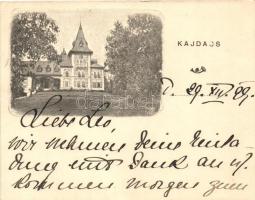 KAJDACS
29. XII. 99.
Liebe Leo,
wir nehmen deine Einla-
dung mit Dank an u.
kommen morgen zum